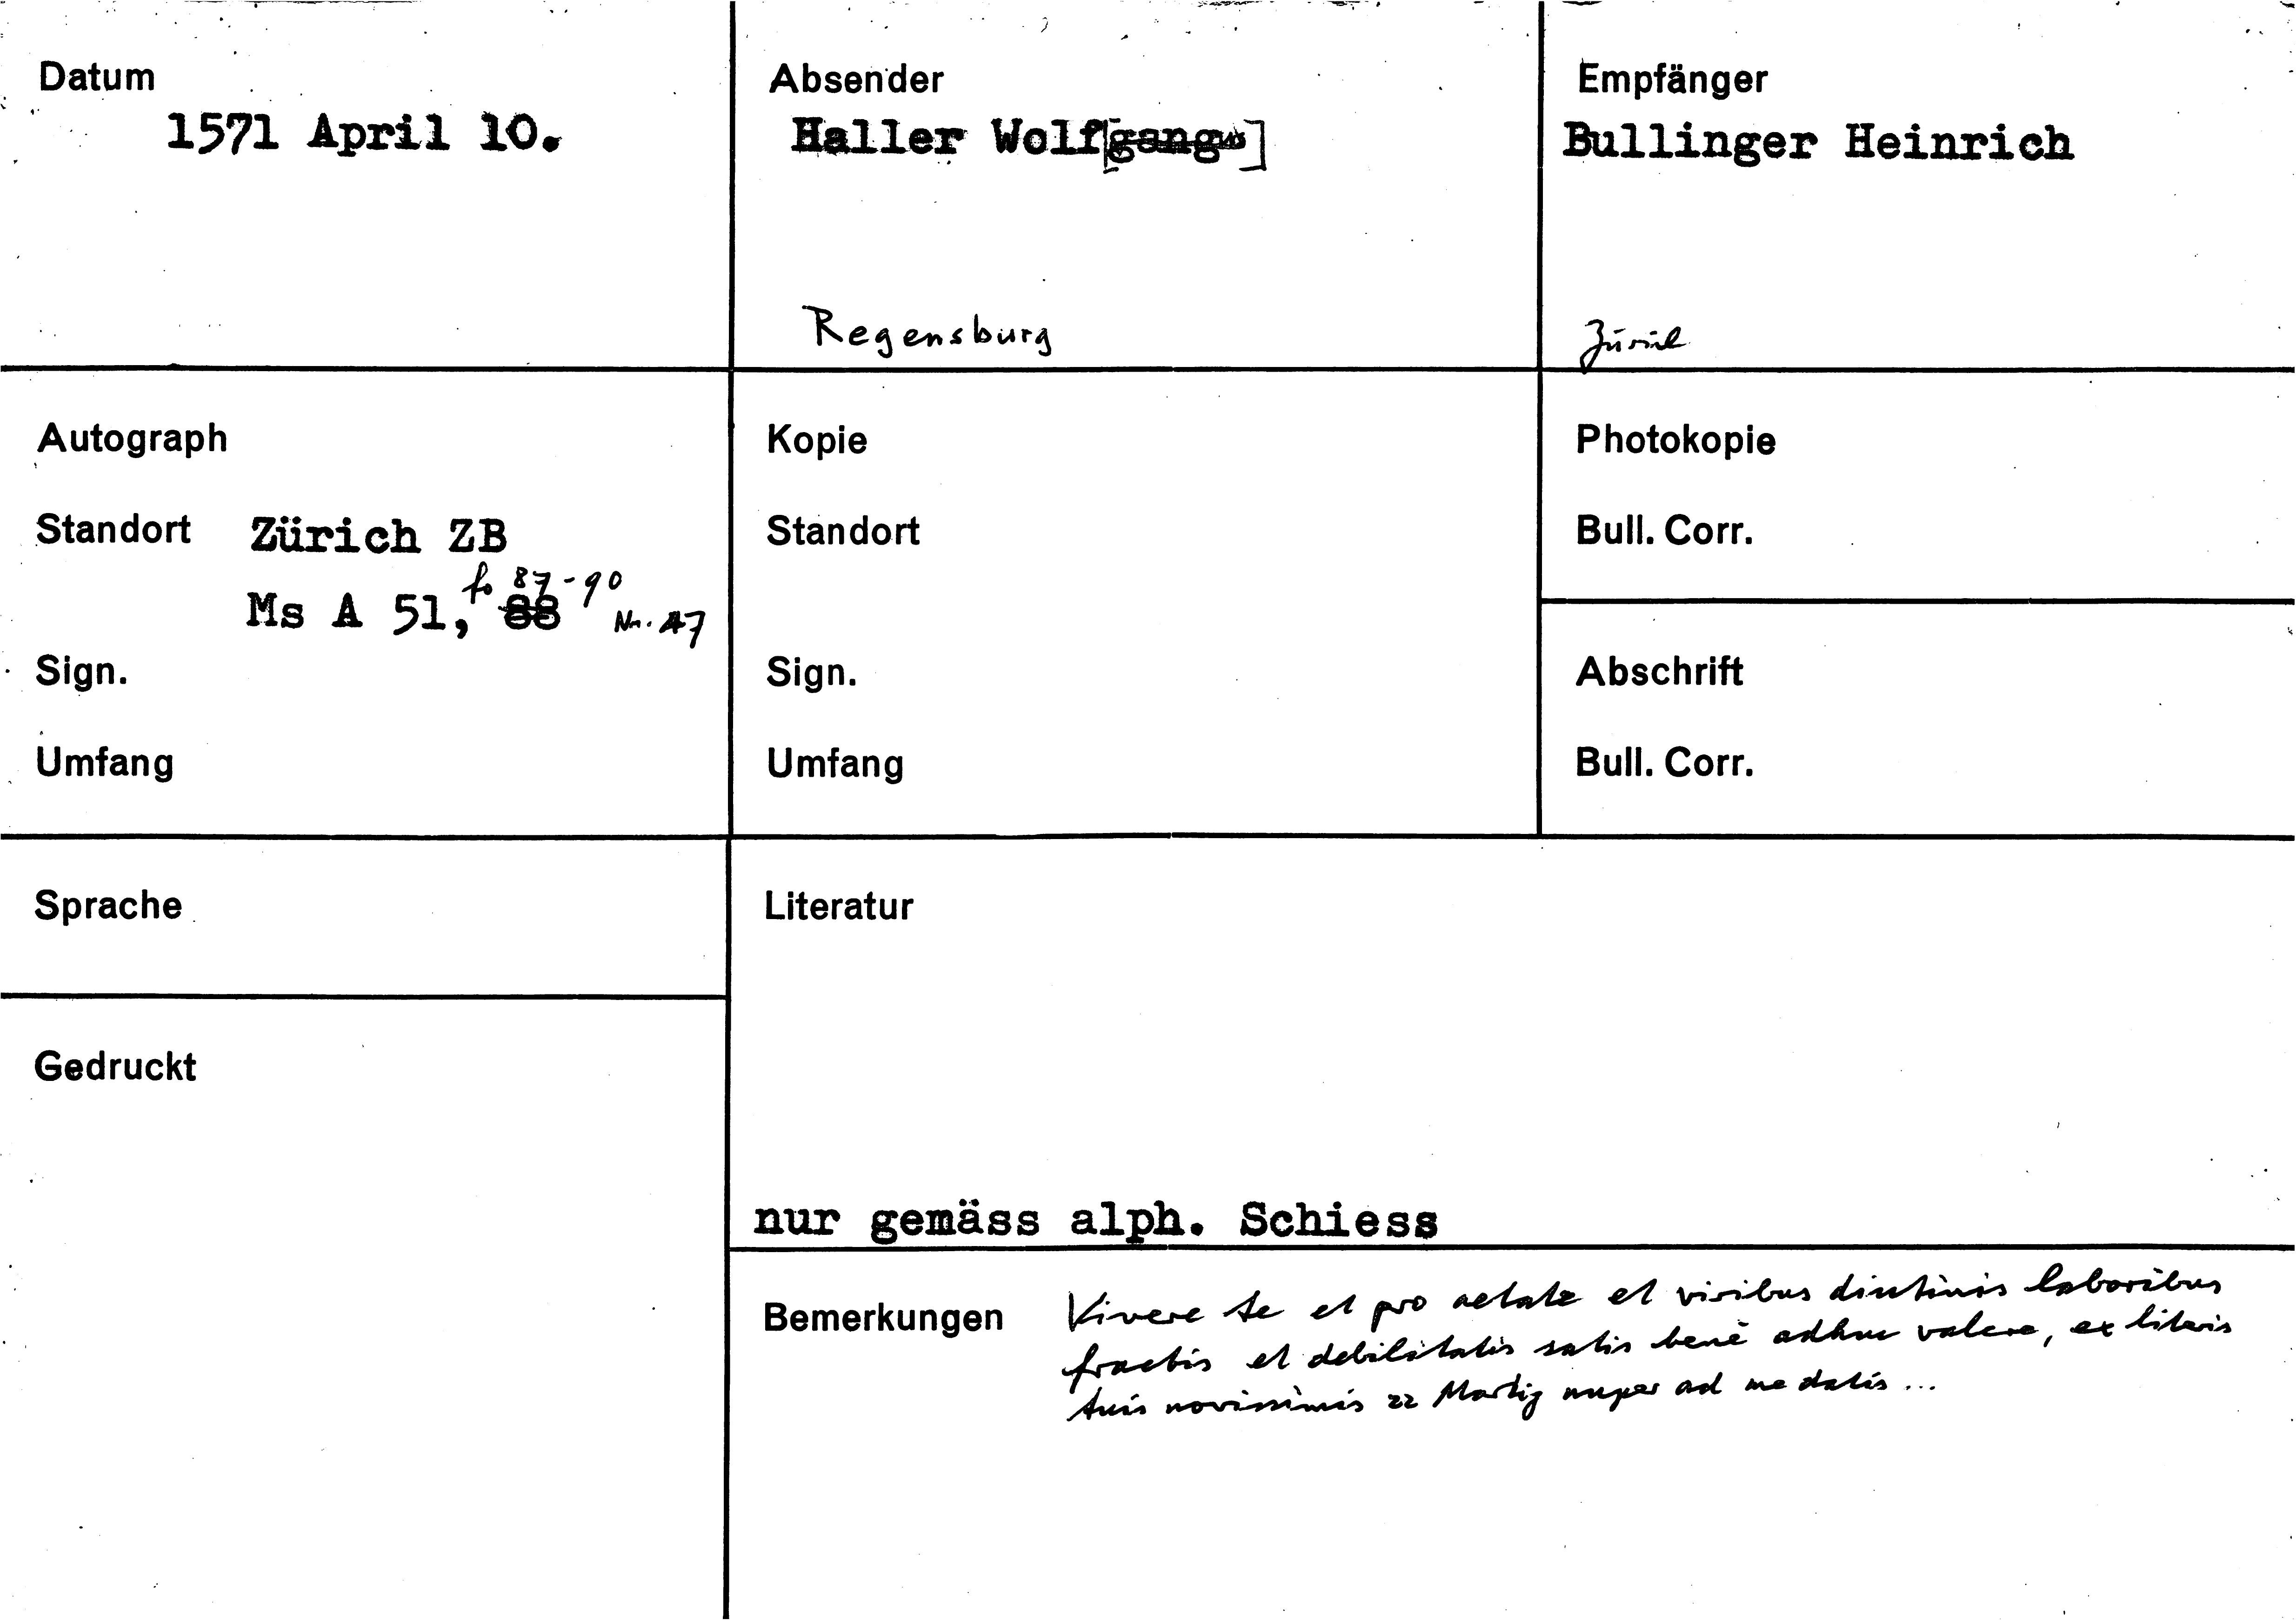 Datum
1571 April 10.
Absender
Haller Wolf[gang]
Regensburg
Empfänger
Bullinger Heinrich
Zürich
Autograph
Standort Zürich ZB
Ms A 51, fo 87-90 88 Nr. 47
Sign.
Umfang
Kopie
Standort
Sign.
Umfang
Photokopie
Bull. Corr.
Abschrift
Bull. Corr.
Sprache
Gedruckt
Literatur
nur gemäss alph. Schiess
Bemerkungen Vivere te et pro aetate et viribus diutinis laboribus
fractis et debilitatis satis bene adhuc valere, ex literis
tuis novissimis 22 Martij nuper ad me datis ...